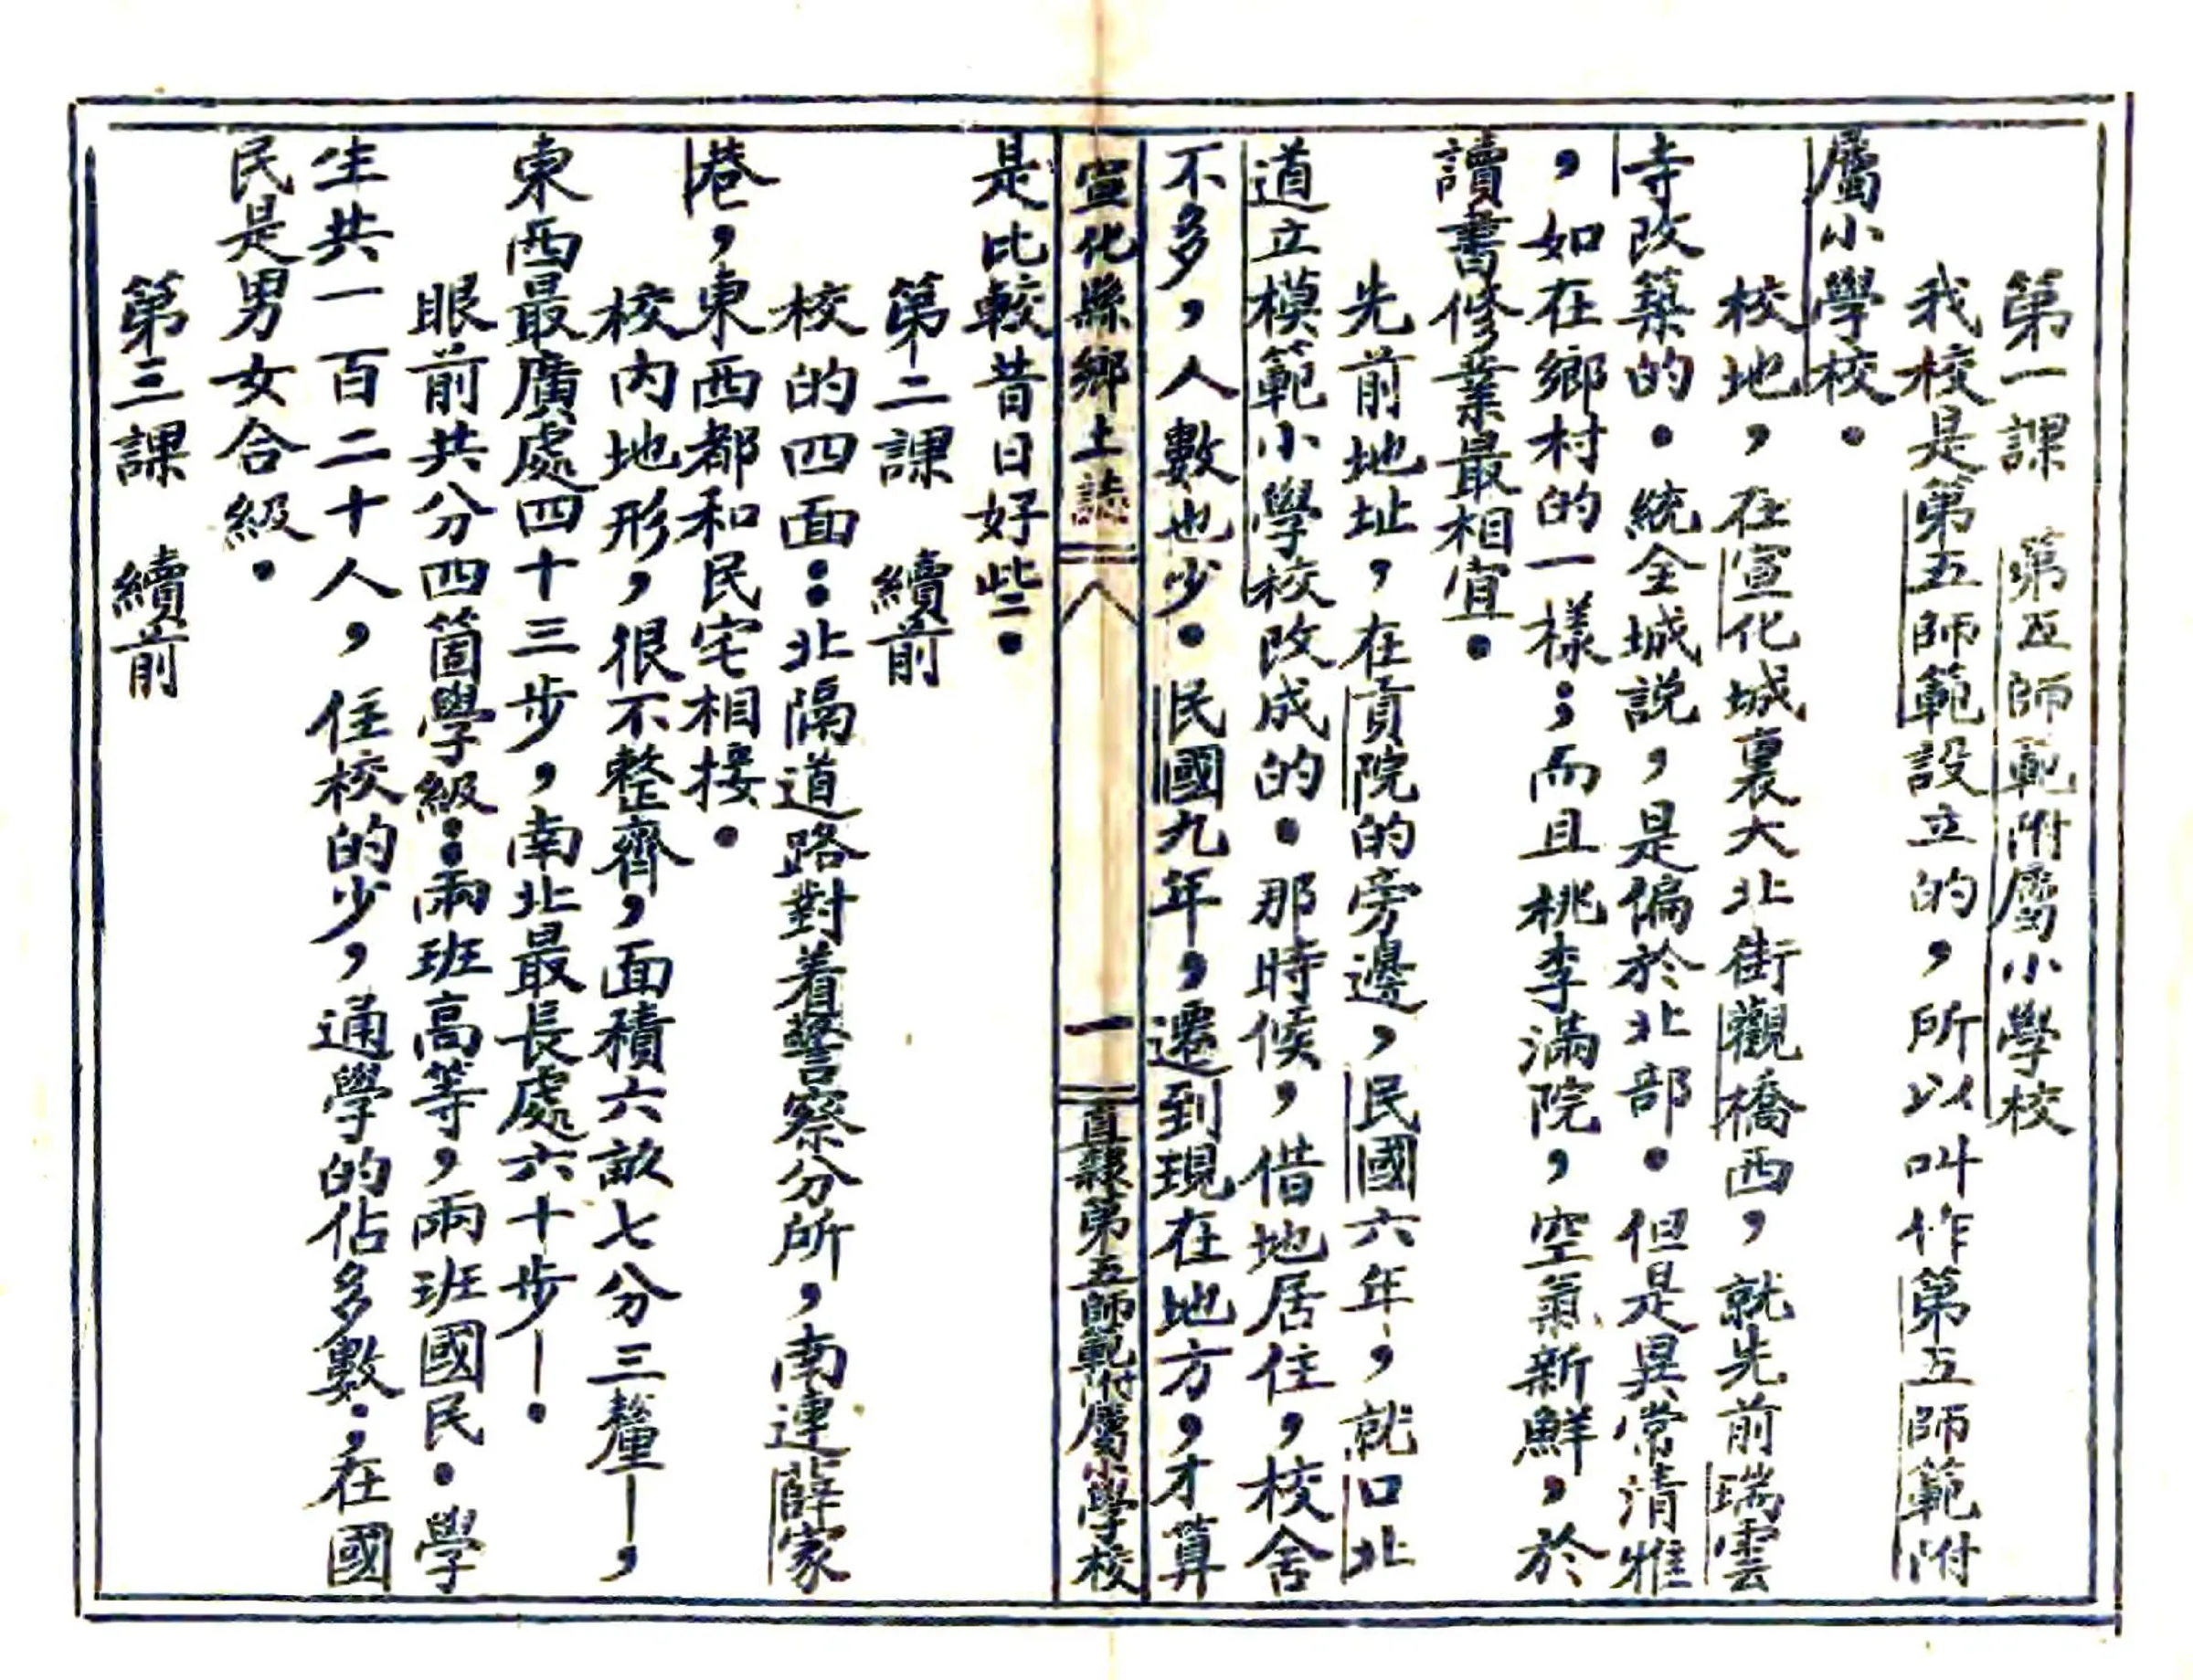 第一課　第五師範附屬小學校
我校是第五師範設立的，所以叫作第五師範附
屬小學校．
校地，在宣化城裏大北街觀橋西，就先前瑞雲
寺改築的．統全城説，是偏於北部．但是異常清雅
，如在鄉村的一樣；而且桃李滿院，空氣新鮮，於
讀書修業最相宜．
先前地址，在貢院的旁邊，民國六年，就口北
道立模範小學校改成的．那時候，借地居住，校舍
不多，人數也少．民國九年，遷到現在地方，才算
宣化縣鄉土誌　一　直隸第五師範附屬小學校
是比較昔日好些．
第二課　續前
校的四面：北隔道路對着警察分所，南連薛家
巷，東西都和民宅相接．
校內地形，很不整齊，面積六畝七分三釐—，
東西最廣處四十三步，南北最長處六十步—．
眼前共分四箇學級：兩班高等，兩班國民．學
生共一百二十人，住校的少，通學的佔多數；在國
民是男女合級．
第三課　續前